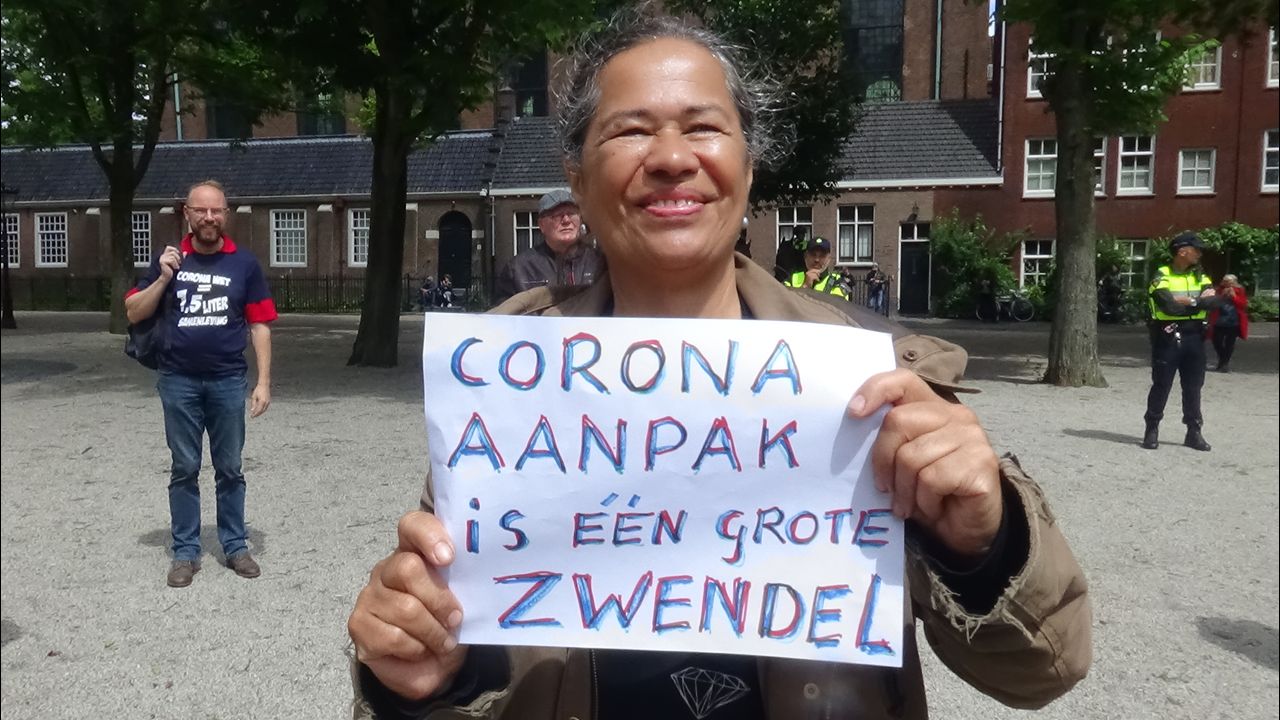 CORONA
AANPAK
is ÉÉN GROTE
ZWENDEL
CORONA WET
1,5 LITER
SAMENLEVING